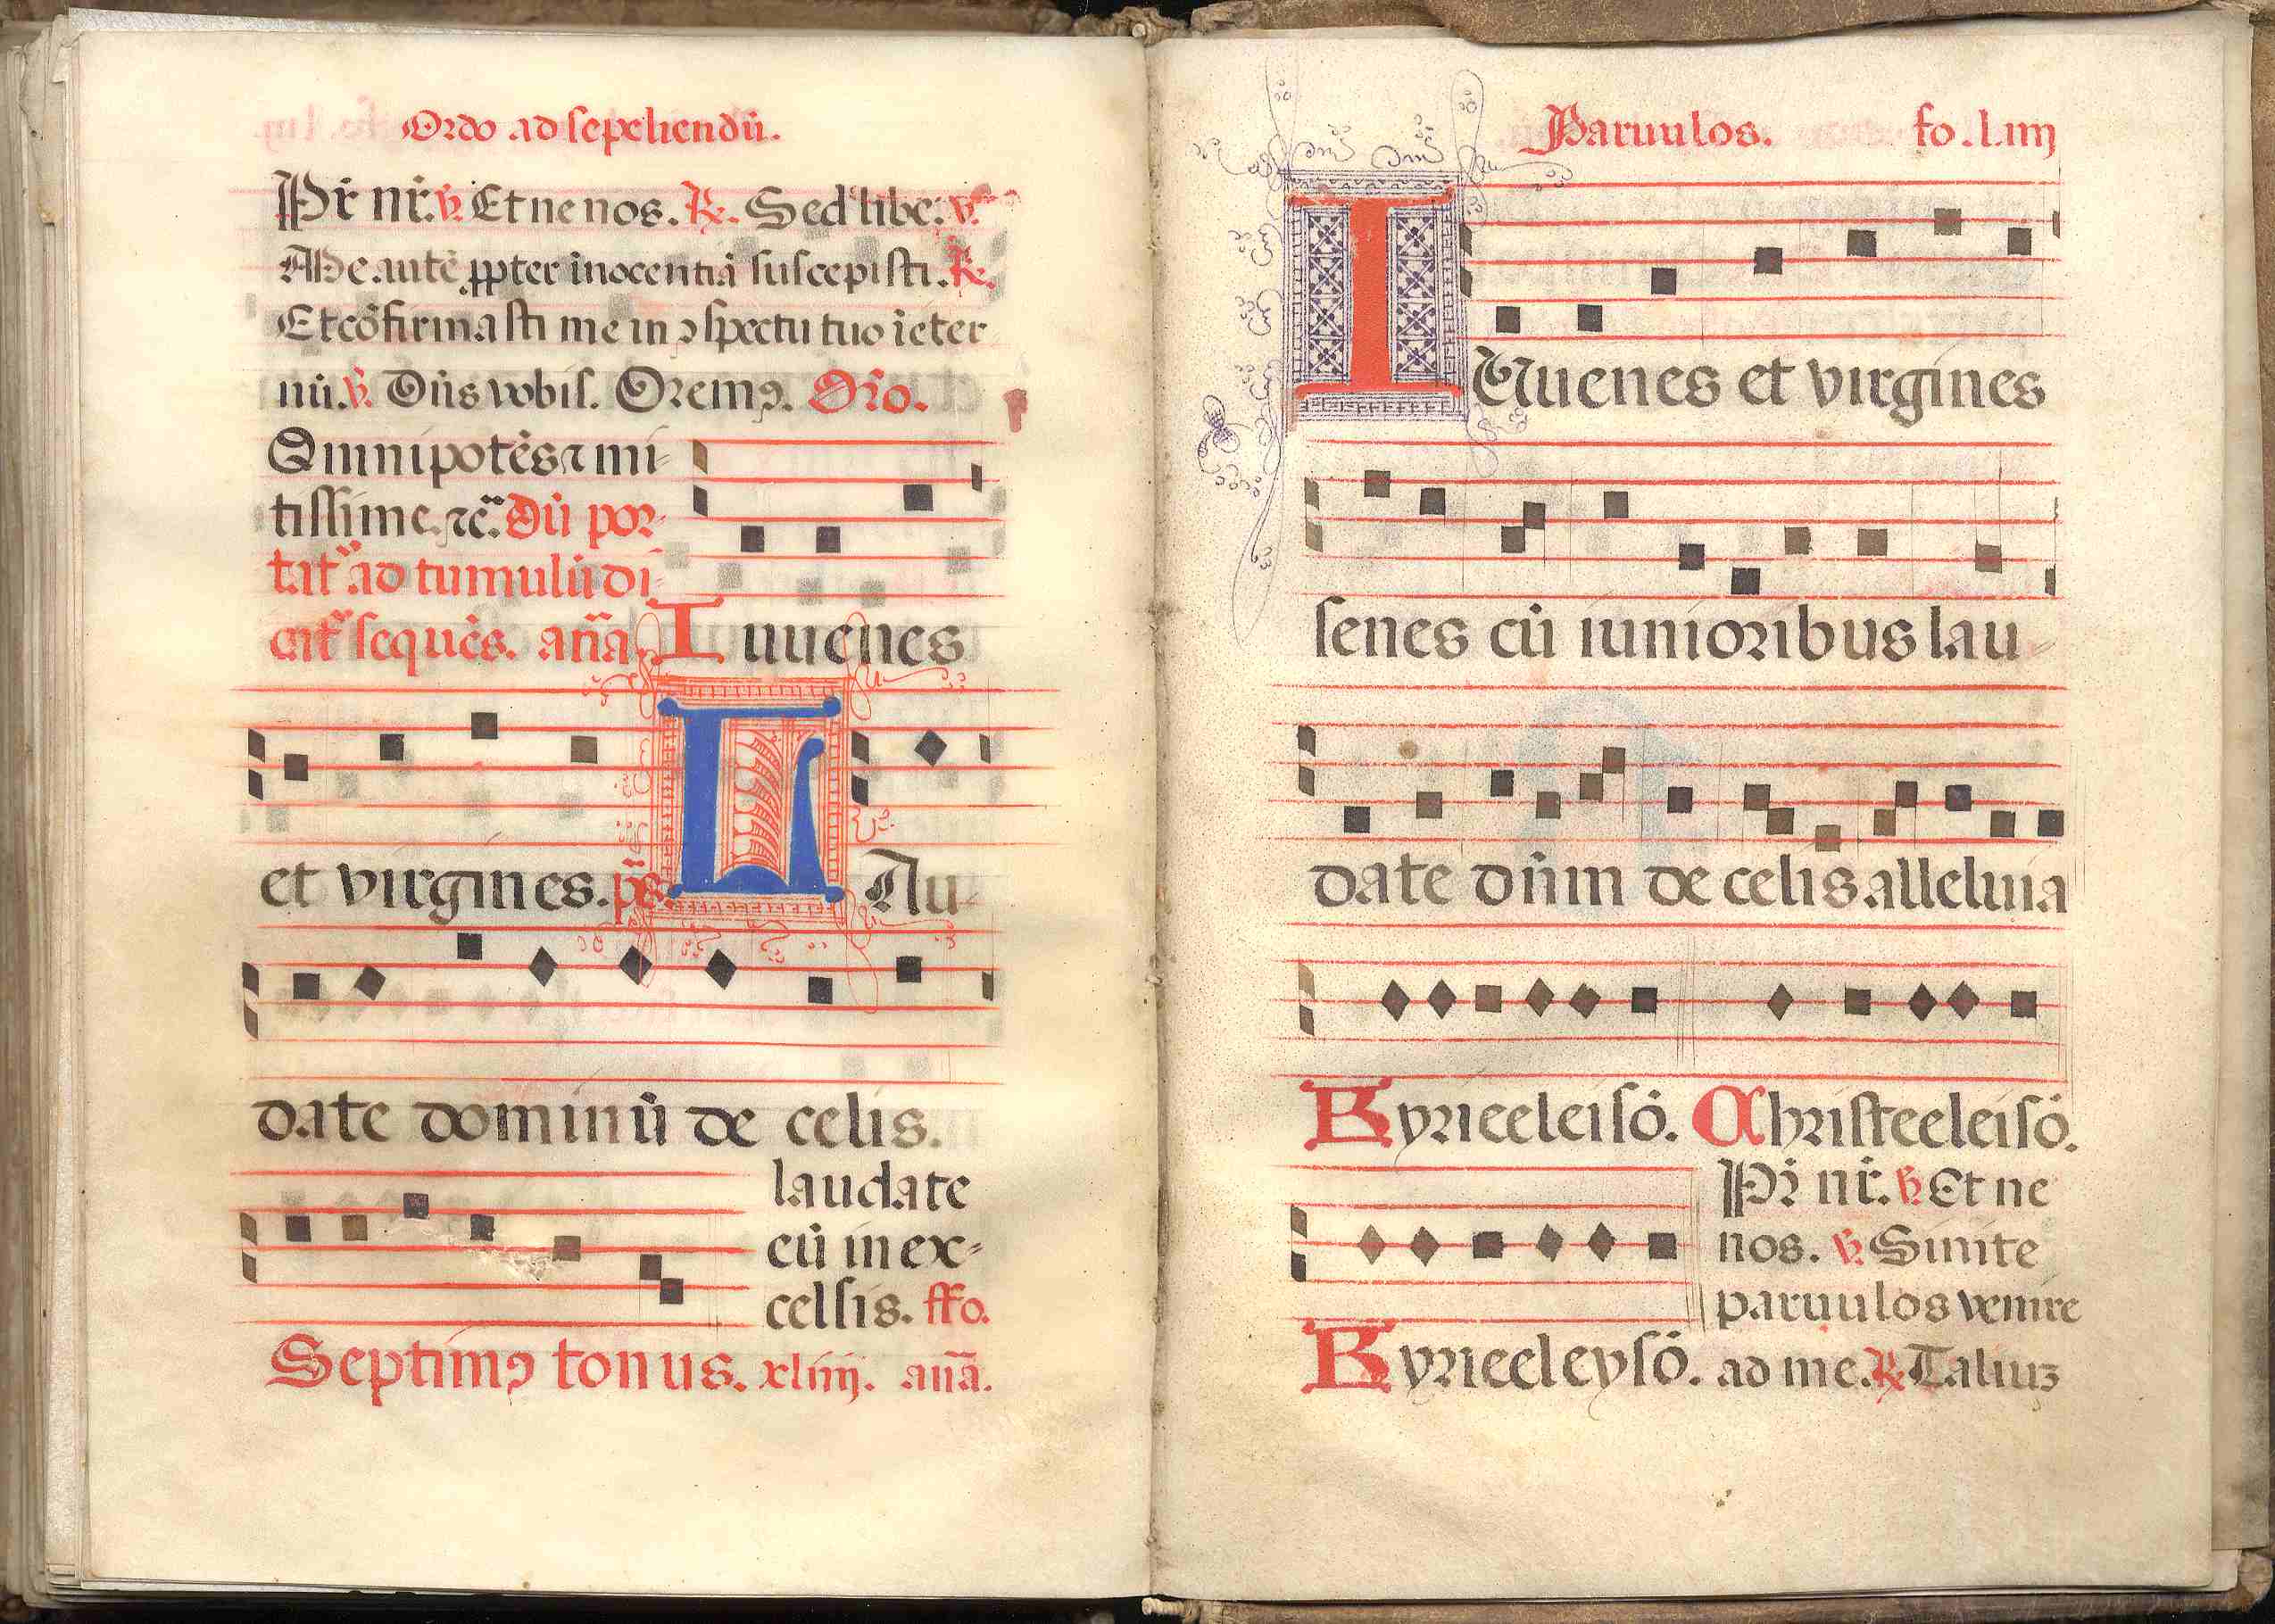 Ordo ad sepeliendū.
Pr̄ nr̄. ℣. Et ne nos. ℟. Sed libe. ℣.
Me autē ꝓpter īnocentiā suscepisti. ℟.
Et cōfirmasti me in ↄspectu tuo ī eter
nū. ℣. Dn̄s vobis. Oremꝰ. Or̄o.
Omnipotēs ⁊ mi-
tissime. ⁊c̄. Dū por-
tat᷑ ad tumulū di-
cit᷑ sequēs. an̄a. Iuuenes
et virgines. ps̄. LAu-
date dominū de celis.
laudate
cū in ex-
celsis. ffo.
Septimꝰ tonus. xliiij. an̄a.
Paruulos. fo. l.iiij
IUuenes et virgines
senes cū iunioribus lau-
date dn̄m de celis alleluia
Kyrieeleisō. Christeeleisō.
Pr̄ nr̄. ℣. Et ne
nos. ℣. Sinite
paruulos venire
Kyrieeleysō. ad me. ℟. Taliuꝫ